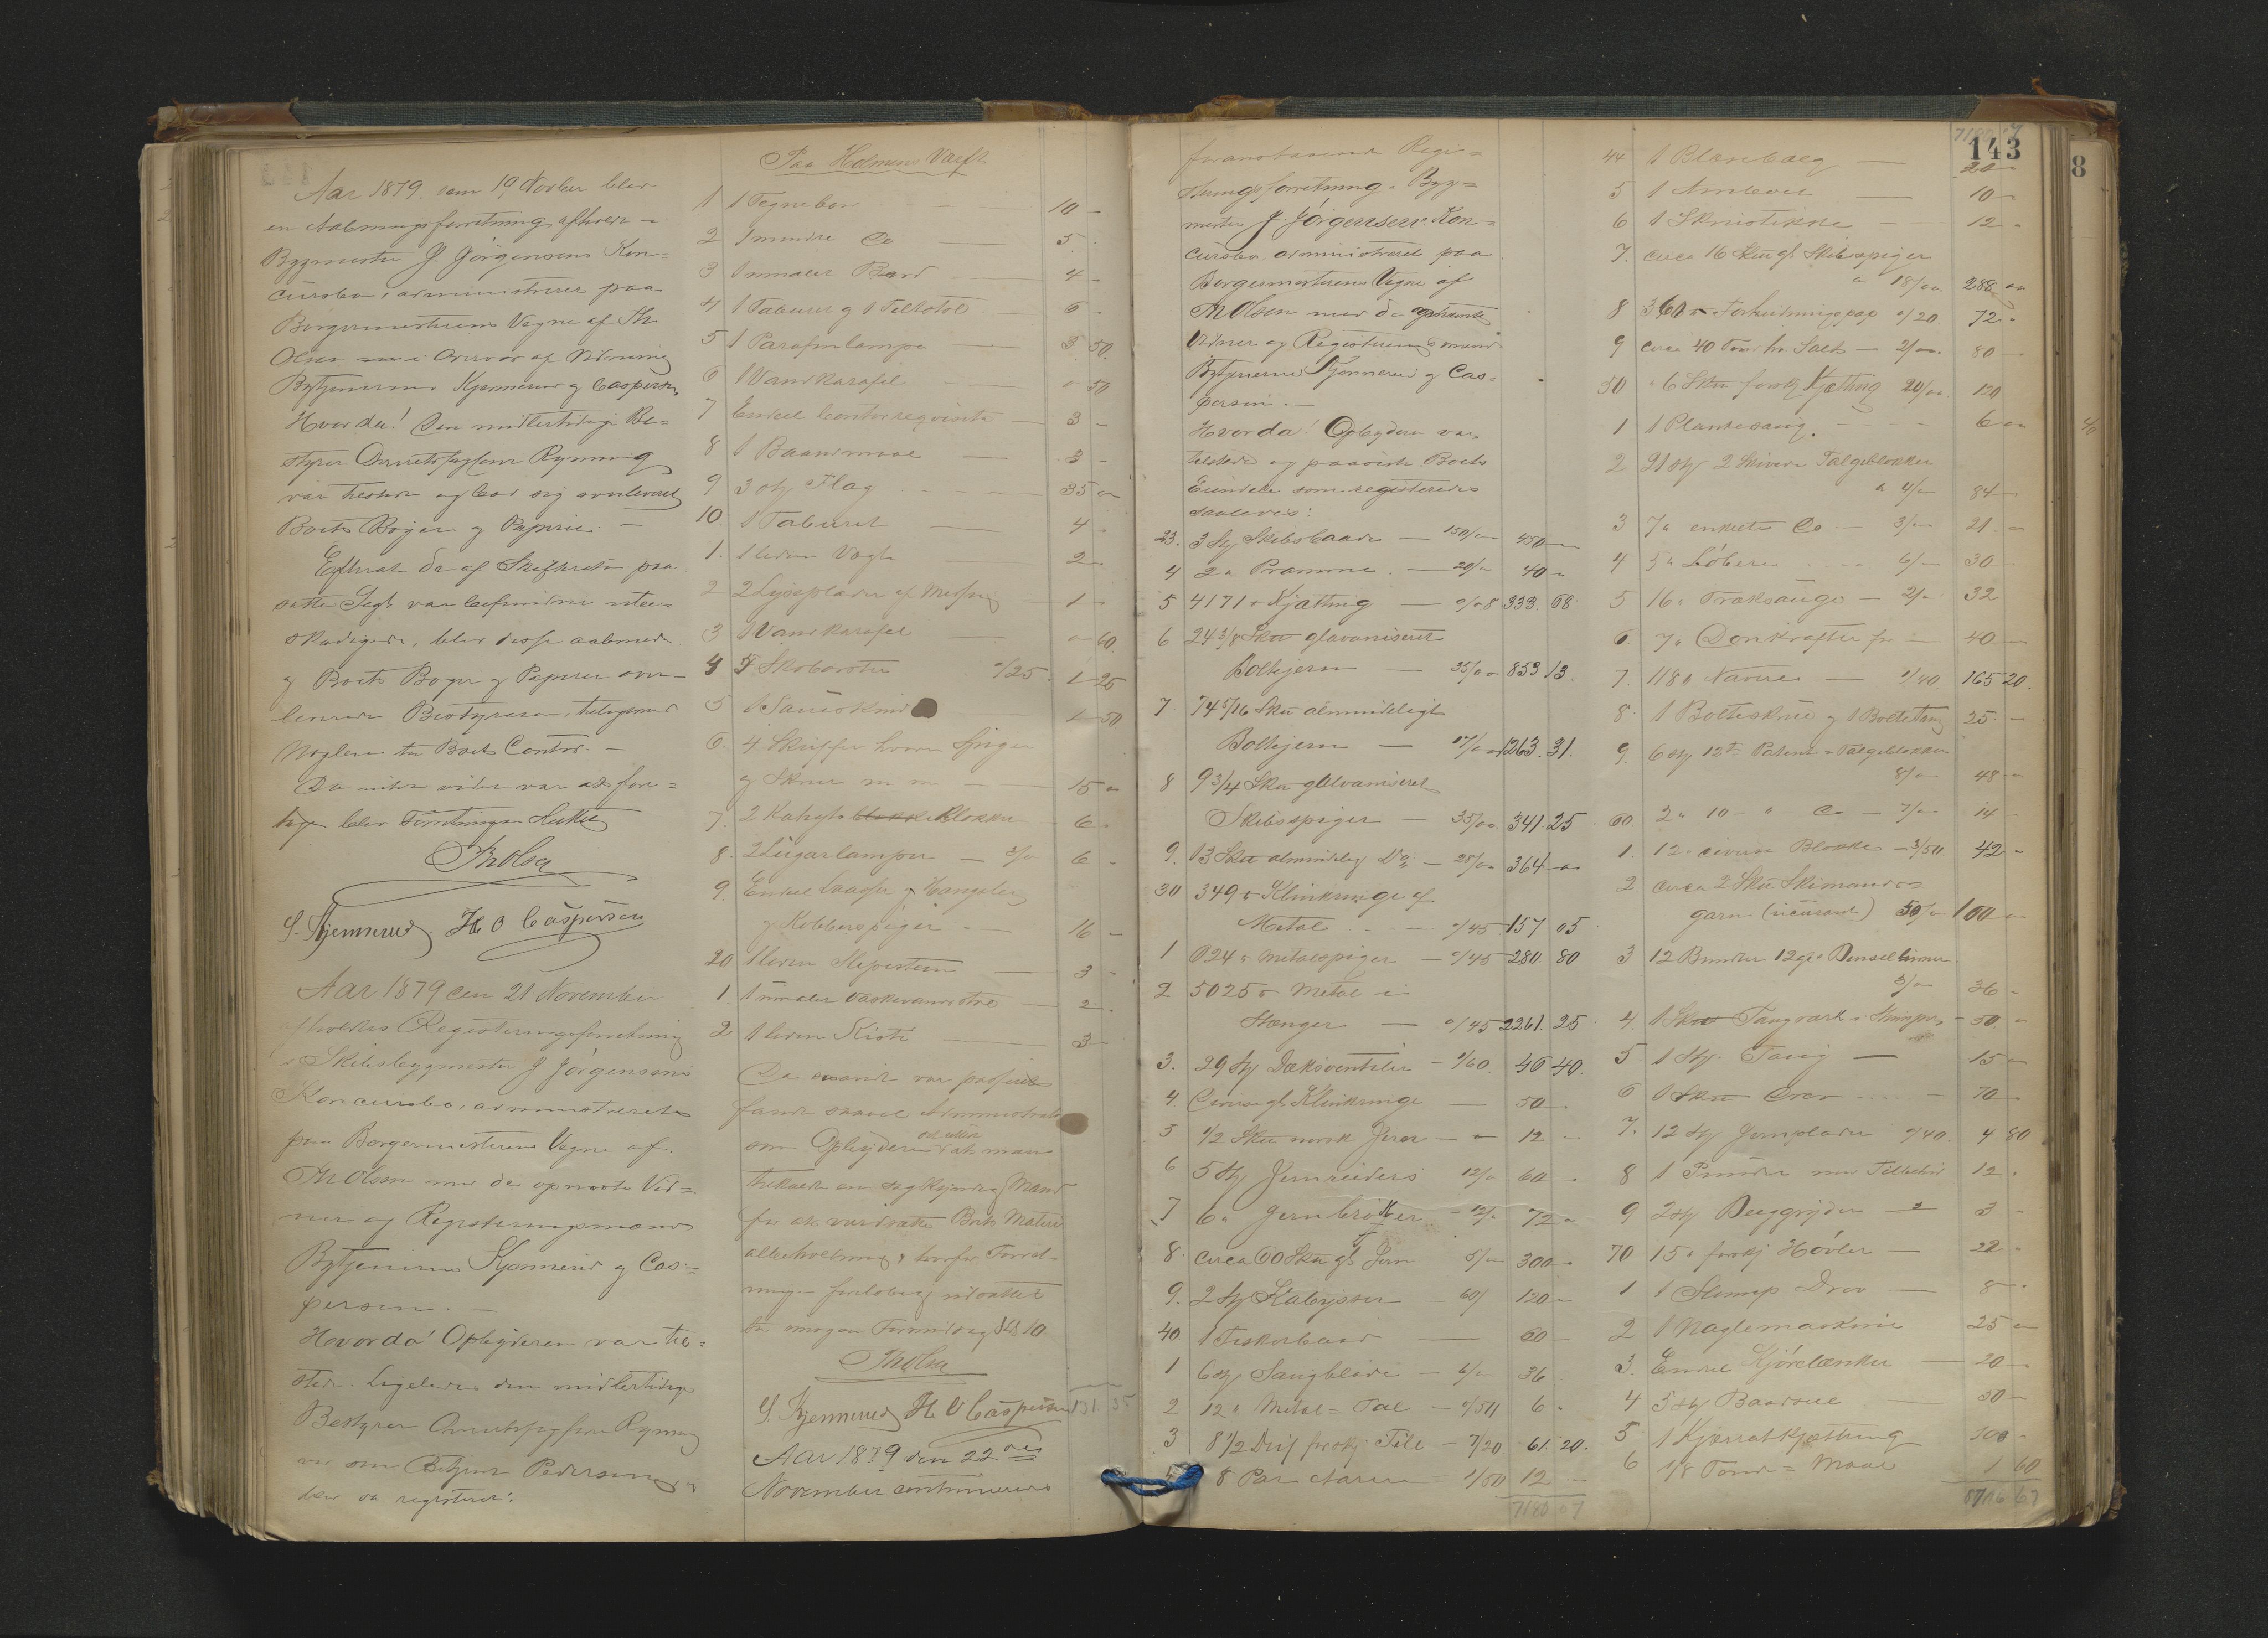 Aar 1879 den 19 Novber blev
en Aabningsforretning afholdt
Bygmester J. Jörgensens Kon=
cursbo, administreret paa
Borgermesterens Vegne af Th
Olsen i Overvær af Vidnerne
Bytjenerne Kjennerud og Caspersen
Hvorda! Den midlertidige Be=
styrer Overretssagfører Rynning
var tilstede og bad sig overleveret
Boets Bøger og Papirer. —
Efterat de af Skifteretten paa
satte Segl var befundne ube=
skadigede, blev disse aabnede
og Boets Bøger og Papirer over=
leverede Bestyreren, tilligemed
Nøglen til Boets Contor. —
Da intet videre var at fore=
tage blev Forretningen sluttet
Th Olsen
S. Kjennerud H. O Caspersen
Aar 1879 den 21 November
afholdtes Registreringsforretning
i Skibsbygmester J Jörgensens
Koncursbo, administreret
paa Borgermesterens Vegne af
Th Olsen med de opnævnte Vid=
ner og Registreringsmænd
Bytjenerne Kjennerud og Cas=
persen. —
Hvorda! Opbyderen var til=
stede. Ligeledes den midlertidige
Bestyrer Overretssagfører Rynning
ved sin Betjent Pedersen og
blev da registreret:
Paa Holmens Værft
1 1 Tegnebord — 10 —
2 1 mindre Do — 5 -
3 1 umalet Bord — 4 -
4 1 Taburet og 1 Feltstol 6 -
5 1 Parafinlampe — 3 50
6 1 Vandkarafel — " 50
7 Endel Contorrequisita — 3 -
8 1 Baandmaal — 3 -
9 3 stk Flag — 35 "
10 1 Taburet — 4 -
1. 1 liden Vægt — 2
2 2 Lyseplader af Messing 1 -
3 1 Vandkarafel " 60
4 5 Skobørster "/25 1 25
5 1 Saueskind 1 50
6. 4 Skuffer hvori Spiger
og Skruer m m — 15 "
7. 2 Kahyts Klokker — 6 -
8. 2 Lugarlamper — 3/" 6 -
9. Endel Laase og Hængsler
og Kobberspiger — 16 -
20 1 liden Slipesten — 3 -
1. 1 umalet Vaskevandsstol — 2
2 1 liden Kiste — 3 -
Da saavidt var passeret
fandt saavel Administrator
som Opbyderen det rettest at man
tilkaldte en sagkyndig Mand
for at værdsætte Boets Materi
albeholdning, hvorfor Forret=
ningen foreløbig udsattes
til imorgen Formiddag Kl 10
Th Olsen
S. Kjennerud H. O Caspersen 131 35
Aar 1879 den 22des
November continueredes
foranstaaende Regi=
streringsforretning i Byg=
mester J. Jörgensens Kon=
cursbo, administreret paa
Borgermesterens Vegne af
Th Olsen med de opnævnte
Vidner og Registreringsmænd
Bytjenerne Kjennerud og Cas=
persen. —
Hvorda! Opbyderen var
tilstede og paaviste Boets
Eiendele som registreredes
saaledes:
23. 3 stk Skibsbaade — 150/" 450 —
4 2 " Pramme — 20/" 40 "
5 4171 ℔ Kjætting — "/08 333. 68
6 24 3/8 Sku galvaniseret
Boltejern — 35/" 853 13.
7 74 5/16 Sku almindeligt
Boltejern — 17/" 1263. 31.
8 9 3/4 Sku galvaniseret
Skibsspiger — 35/" 341 25
9. 13 Sku almindelig Do — 28/" 364 "
30 349 ℔ Klinkringe af
Metal — "/45 157 05
1 624 ℔ Metalspiger — "/45 280. 80
2 5025 ℔ Metal i
Stænger — "/45 2261. 25
3. 29 stk Dæksventiler — 1/60. 46 40.
4. Diverse gl. Klinkringe — 50 —
5 1/2 Sku norsk Jern — " 12 -
6 5 stk Jernreiders 12/" 60 -
7 6 " Jernbrokker — 12/" 72 "
8. circa 60 Sku gl. Jern 5/" 300 -
9. 2 stk Kabysser — 60/ 120 -
40 1 Fiskerbaad — 60 —
1 6 stk Saugblade — 6/" 36
2 12 " Metal = — "/50 6 -
3 8 1/2 forskj. File — 7/20 61. 20.
8 Par Aarer — 1/50 12 —
7180 07
143
7180 07
44 1 Blæsebælg — 20 —
5 1 Ambolt — 10 —
6 1 Skruestikke — 12 -
7. circa 16 Sku gl Skibsspiger
a 18/" 288 "
8 360 ℔ Forhudningspap "/20 72 -
9 circa 40 Tønder Salt — 2/" 80 —
50 " 6 Sku forskj Kjætting 20/" 120
1 1 Plankesaug — 6 "
2 21 stk 2 skivede Talgeblokke
a 4/" 84 —
3 7 " enkelte Do — 3/" 21 "
4 5 " Løbere — 6/" 30 —
5 16 " Træksauge — 2/" 32
6. 7 " Donkrafter — 40 —
7. 118 " Navere — 1/40 165 20.
8. 1 Bolteskrue og 1 Boltetang 25 —
9. 6 stk 12" Patent = Talgeblokke
8/" 48 —
60 2 " 10 " Do — 7/" 14 -
1. 12 diverse Blokke — 3/50 42 -
2 circa 2 Sku Skimands=
garn (ucurant) 50/" 100 —
3 12 Bundter
3/" 36 -
4. 1 Sku Tougværk i Stumper 50 "
5 1 stk Toug — 15 —
6 1 Sku Drev — 70 —
7. 12 stk Jernplader "/40. 4 80
8 1 Pumder med Tilbehør 12.
9 2 stk Beeggryder — 3 -
70 15 " forskj Høvler — 22 -
1 1 Slump Drev — 8 -
2 1 Naglemaskine 25 "
3. Endel Kjørelænker — 20 —
4 5 stk — 50 —
5 1 Kjærratkjætting 100 -
6 1/8 Tønde = Maal 1 60
67
8